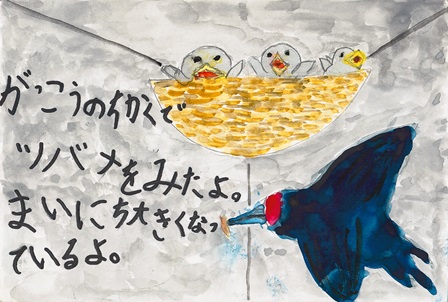 がっこうのちかくで
ツバメをみたよ。
まいにち大きくなっ
ているよ。